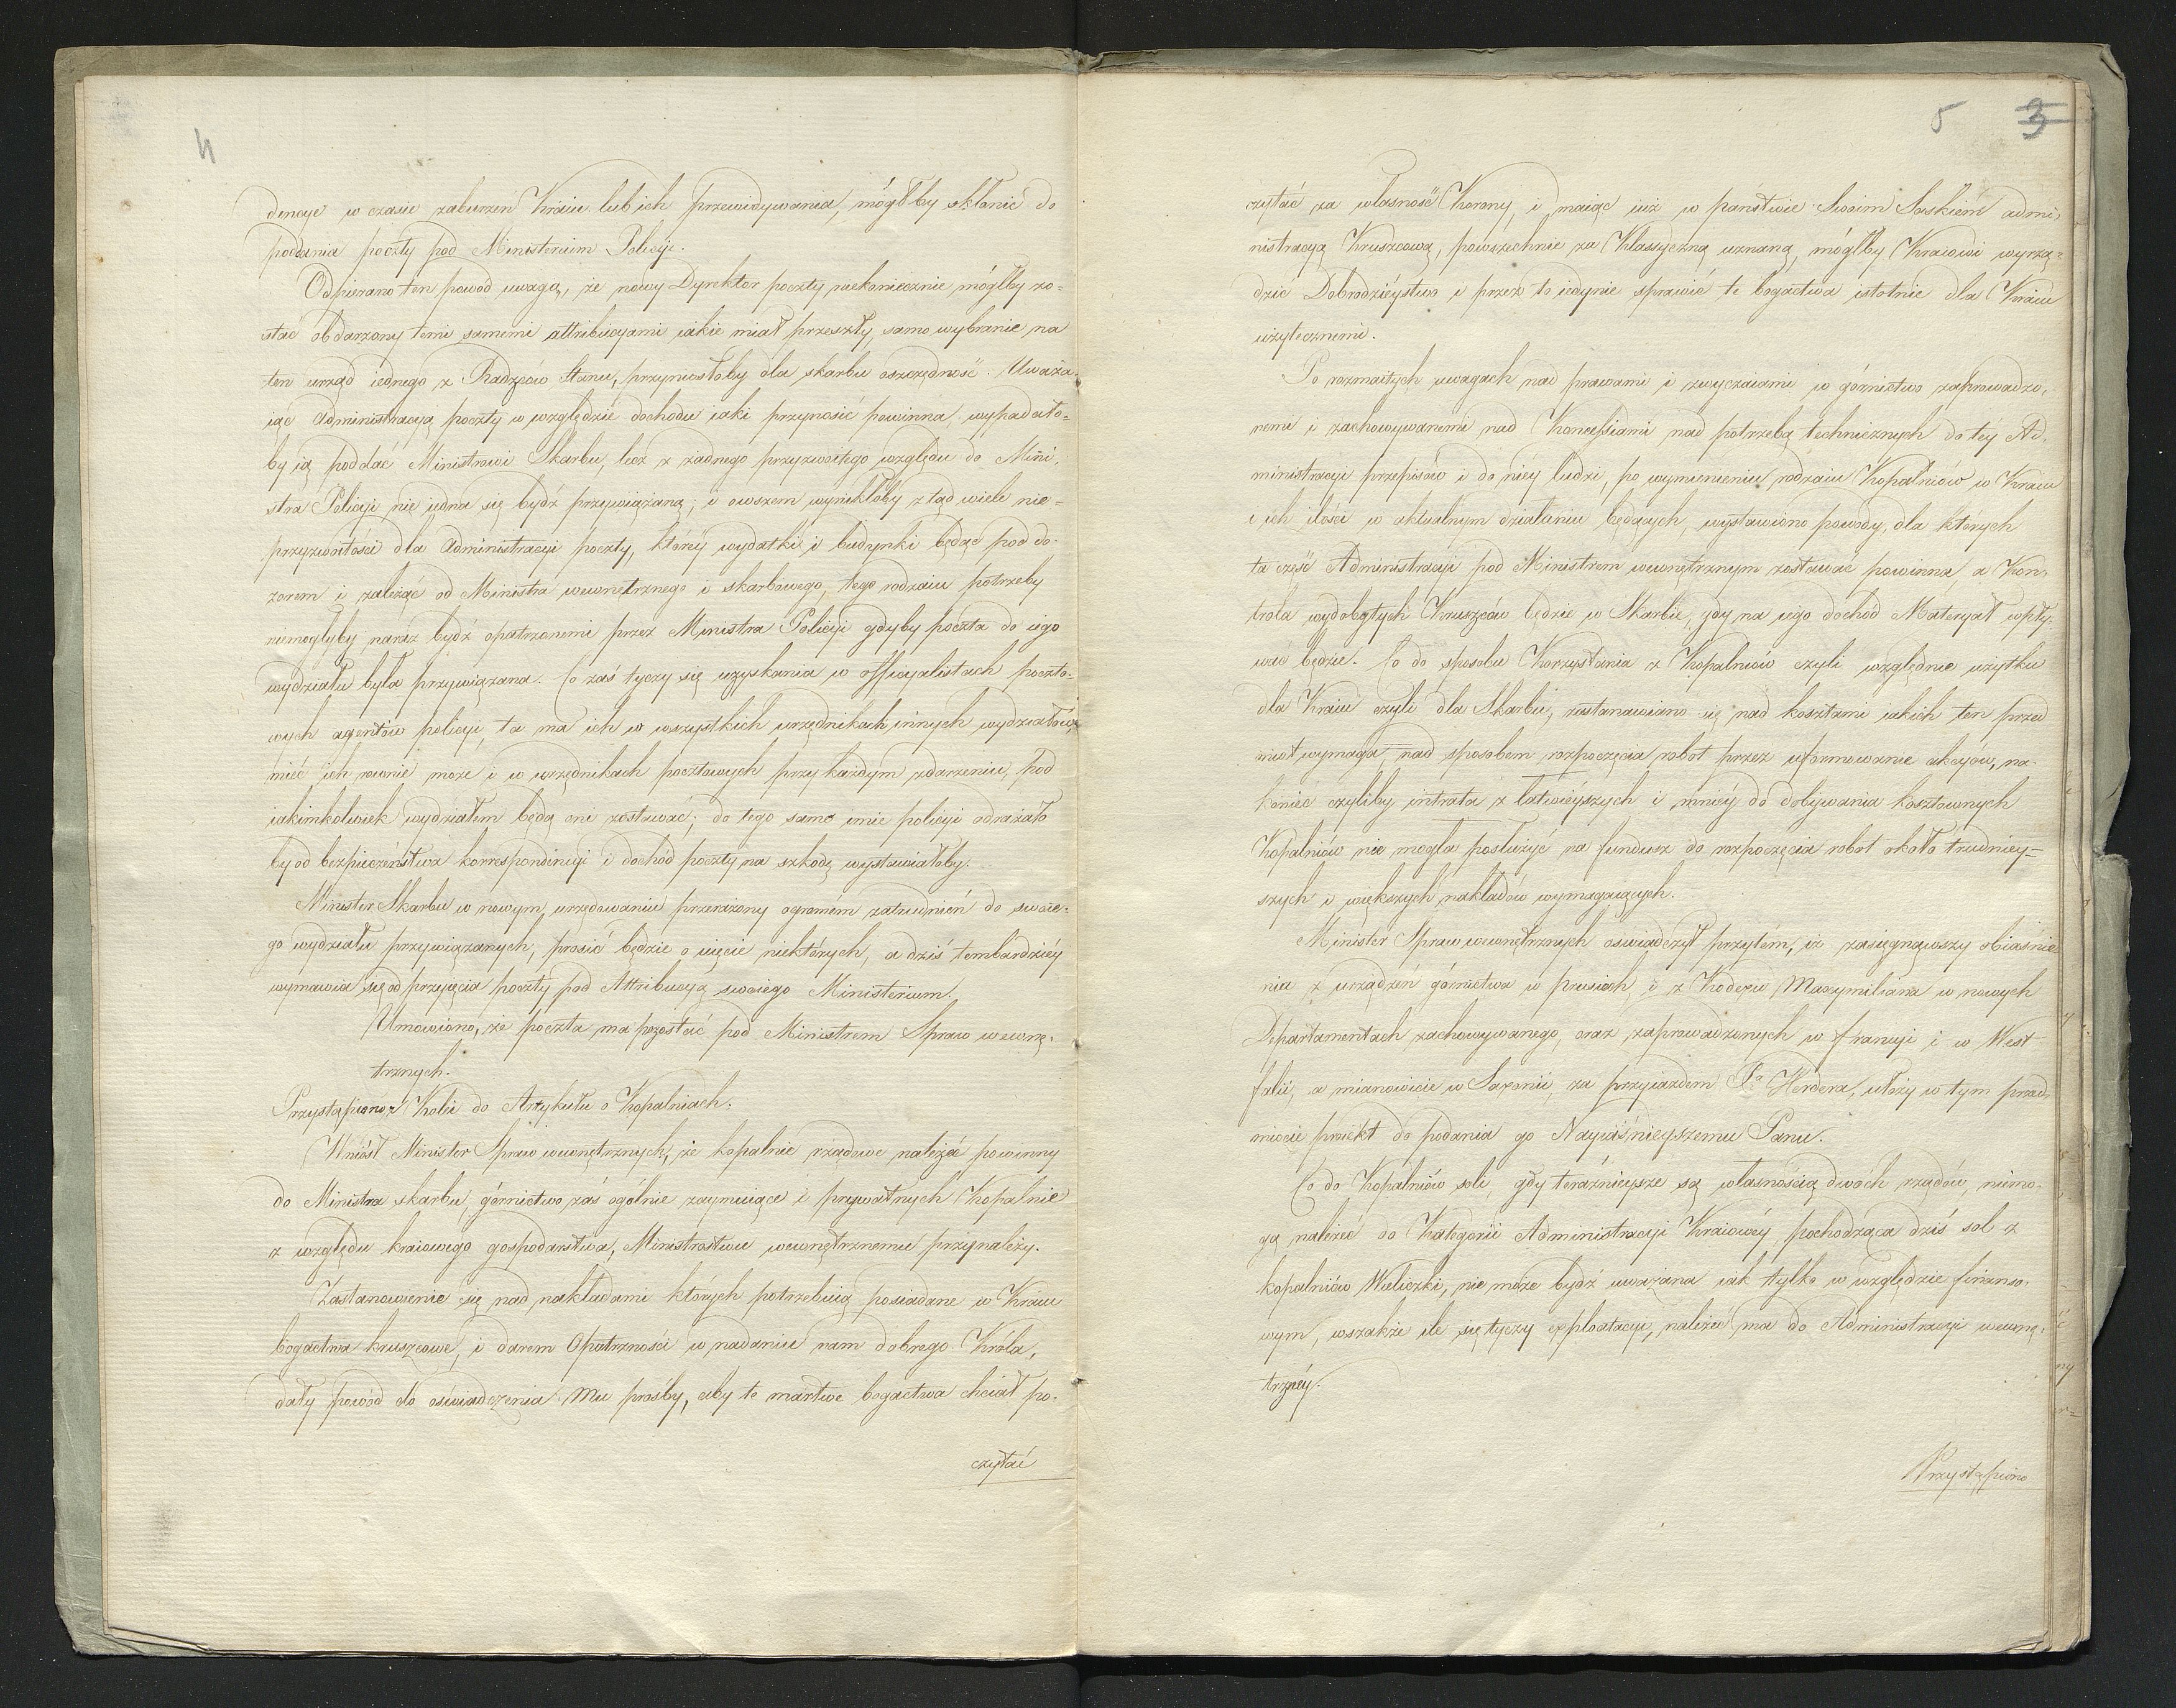 4
dencye w czasie zaburzeń Kraiu lub ich przewidywania, mógłby skłonić do
poddania poczty pod Ministerium Policyi.
Odpierano ten powód uwagą, że nowy Dyrektor poczty niekoniecznie mógłby zo=
stać obdarzony temi samemi attribucyami iakie miał przeszły, samo wybranie na
ten urząd iednego z Radzców Stanu, przyniosłoby dla skarbu oszczędność. Uważa=
iąc Administracyą poczty w względzie dochodu iaki przynosić powinna, wypadało=
by ią poddać Ministrowi Skarbu, lecz z żadnego przyzwoitego względu do Mini=
stra Policyi nie iedna się bydź przywiązaną; i owszem wynikłoby z tąd wiele nie=
przyzwoitości dla Administracyi poczty, któréy wydatki i budynki będąc pod do=
zorem i zależąc od Ministra wewnętrznego i skarbowego, tego rodzaiu potrzeby
niemogłyby naraz bydź opatrzonemi przez Ministra Policyi gdyby poczta do iego
wydziału była przywiązana. Co zaś tyczy się uzyskania w officyalistach poczto=
wych agentów policyi, ta ma ich w wszystkich urzędnikach innych wydziałów,
mieć ich równie może i w urzędnikach pocztowych przy każdym zdarzeniu, pod
iakimkolwiek wydziałem będą oni zostawać; do tego samo imie policyi odrażało
by od bezpieczeństwa korrespondencyi i dochód poczty na szkodę wystawiałoby.
Minister Skarbu w nowym urzędowaniu przerażony ogromém zatrudnień do swoie=
go wydziału przywiązanych, prosić będzie o uięcie niektórych, a dziś tembardziéy
wymawia się od przyięcia poczty pod Attribucyą swoiego Ministerium.
Umówiono, że poczta ma pozostać pod Ministrem Spraw wewnę=
trznych.
Przystąpiono z Kolei do Artykułu o Kopalniach.
Wniósł Minister Spraw wewnętrznych, że kopalnie rządowe należeć powinny
do Ministra skarbu, górnictwo zaś ogólnie zaymuiące i prywatnych Kopalnie
z względu kraiowego gospodarstwa, Ministrostwu wewnętrznemu przynależy.
Zastanowienie się nad nakładami których potrzebuią posiadane w Kraiu
bogactwa kruszcowe, i darem Opatrzności w nadaniu nam dobrego Króla,
dały powód do oświadczenia Mu prośby, aby te martwe bogactwa chciał po=
czytać
5 3
czytać za własność Korony, i maiąc iuż w państwie Swoim Saskiém admi=
nistracyą Kruszcową, powszechnie za Klassyczną uznaną, mógłby Kraiowi wyrzą=
dzić Dobrodzieystwo i przez to iedynie sprawić te bogactwa istotnie dla Kraiu
użytecznemi.
Po rozmaitych uwagach nad prawami i zwyczaiami w górnictwo zaprowadzo=
nemi i zachowywanemi nad Koncessiami nad potrzebą technicznych do tey Ad=
ministracyi przepisów i do niéy ludzi, po wymienieniu rodzaiu Kopalniów w Kraiu
i ich ilości w aktualnym działaniu będących, wystawiono powody, dla których
ta część Administracyi pod Ministrem wewnętrznym zostawać powinna a Kon=
trola wydobytych Kruszców będzie w Skarbie, gdy na iego dochód Materyał wpły=
wać będzie. Co do sposobu Korzystania z Kopalniów czyli względnie użytku
dla Kraiu czyli dla Skarbu, zastanawiano się nad kosztami iakich ten przed
miot wymaga nad sposobem rozpoczęcia robot przez uformowanie akcyów, na=
koniec czyliby intrata z łatwieyszych i mniéy do dobywania kosztownych
Kopalniów nie mogła posłużyć na fundusz do rozpoczęcia robot około trudniey=
szych i większych nakładów wymagaiących.
Minister Spraw wewnętrznych oświadczył przytém, iż zasięgnąwszy obiaśnie
nia z urządzeń górnictwa w prusiech, i z Kodexu Maxymiliana w nowych
Departamentach zachowywanego, oraz zaprowadzonych w francyi i w West
falii, a mianowicie w Saxonii, za przyiazdem Pa Herdera, ułoży w tym przed=
miocie proiekt do podania go Nayiaśnieyszemu Panu.
Co do Kopalniów soli, gdy teraźnieysze są własnością dwóch rządów, niemo=
gą należeć do Kategorii Administracyi Kraiowéy, pochodząca dziś sol z
kopalniów Wieliczki, nie może bydź uważana iak tylko w względzie finanso=
wym, wszakże ile się tyczy exploatacyi, należéć ma do Administracyi wewnę=
trznéy.
Przystąpiono